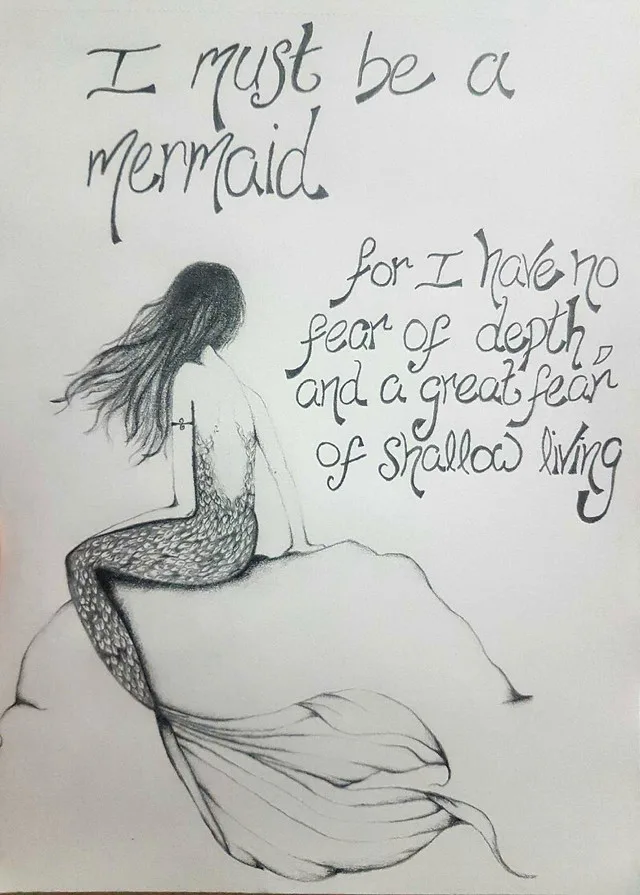 I must be a
mermaid
for I have no
fear of depth,
and a great fear
of shallow living